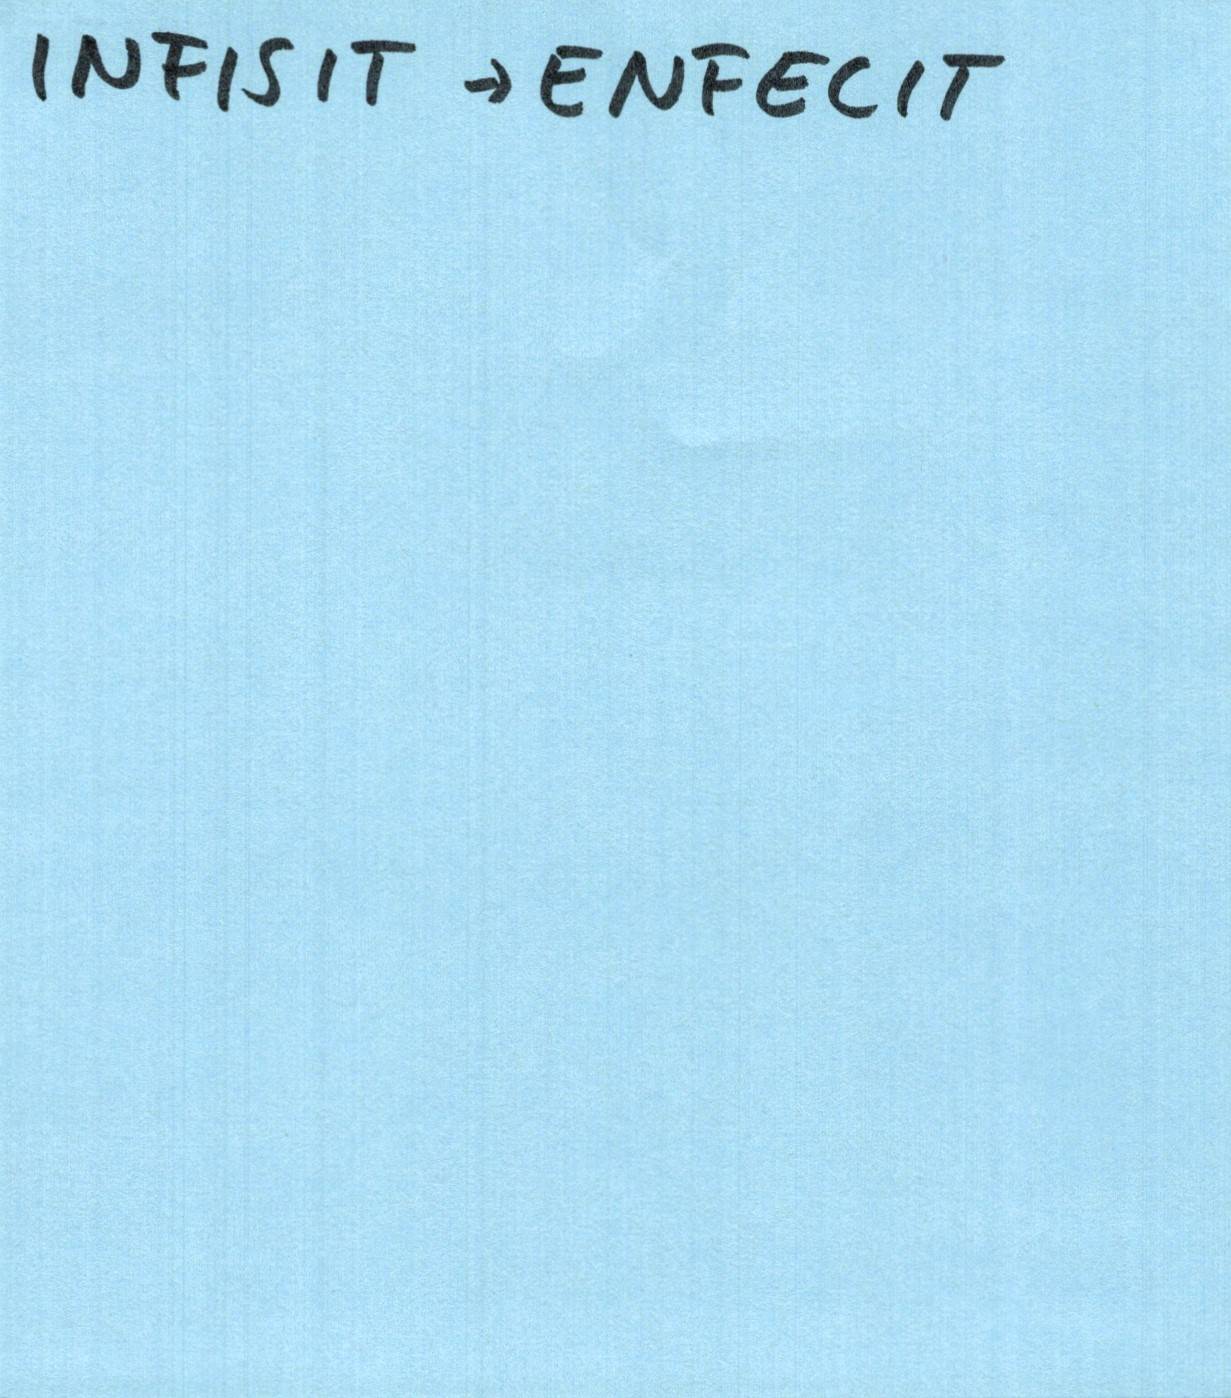 INFISIT → ENFECIT